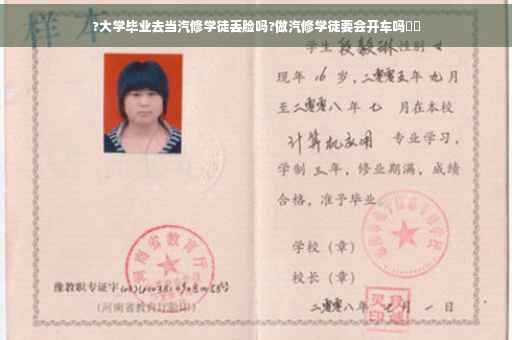 ?大学毕业去当汽修学徒丢脸吗?做汽修学徒要会开车吗
样本
学生 段毅琳 性别 女
现年 16 岁，二零零五年 九月
至二零零八年 七 月在本校
计算机应用 专业学习，
学制 三年，修业期满，成绩
合格，准予毕业
学校（章）
河南省教育厅
校长（章）
豫教职专证字
（河南省教育厅验印）
二零零八年 七 月 一 日